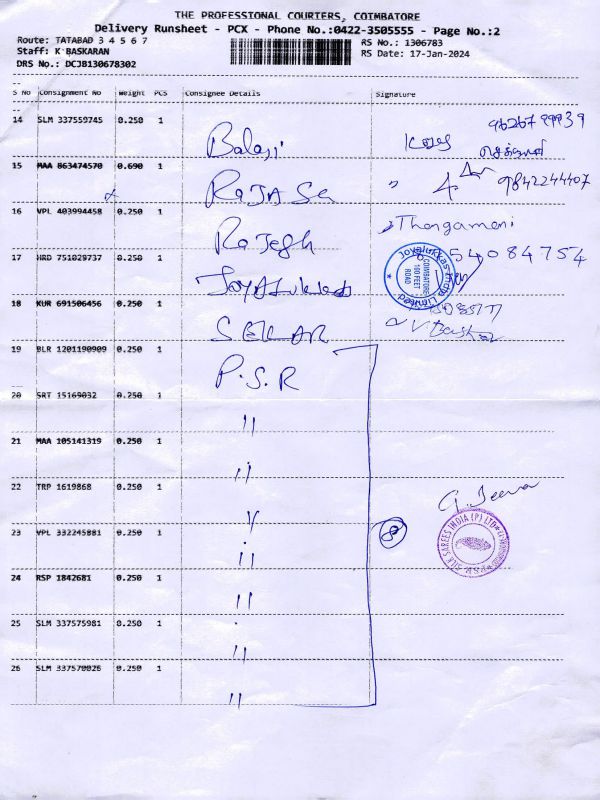 THE PROFESSIONAL COURIERS, COIMBATORE
Delivery Runsheet - PCX - Phone No.:0422-3505555 - Page No.:2
Route: TATABAD 3 4 5 6 7
RS No.: 1306783
Staff: K BASKARAN
RS Date: 17-Jan-2024
DRS No.: DCJB130678302
S No Consignment No Weight PCS Consignee Details Signature
14 SLM 337559745 0.250 1 Balaji
15 MAA 863474570 0.690 1 RAJA Se " 9842244407
16 VPL 403994458 0.250 1 Rajesh Thangamani
17 HRD 751029737 0.250 1 54084754
Joyalukkas India Limited
COIMBATORE
100 FEET
ROAD
18 KUR 691506456 0.250 1 SEKAR
19 BLR 1201190909 0.250 1 P.S.R
20 SRT 15169032 0.250 1 "
21 MAA 105141319 0.250 1 "
22 TRP 1619868 0.250 1 G. Jeeva
23 VPL 332245881 0.250 1 " 8
24 RSP 1842681 0.250 1 "
25 SLM 337575981 0.250 1 "
26 SLM 337570026 0.250 1 "